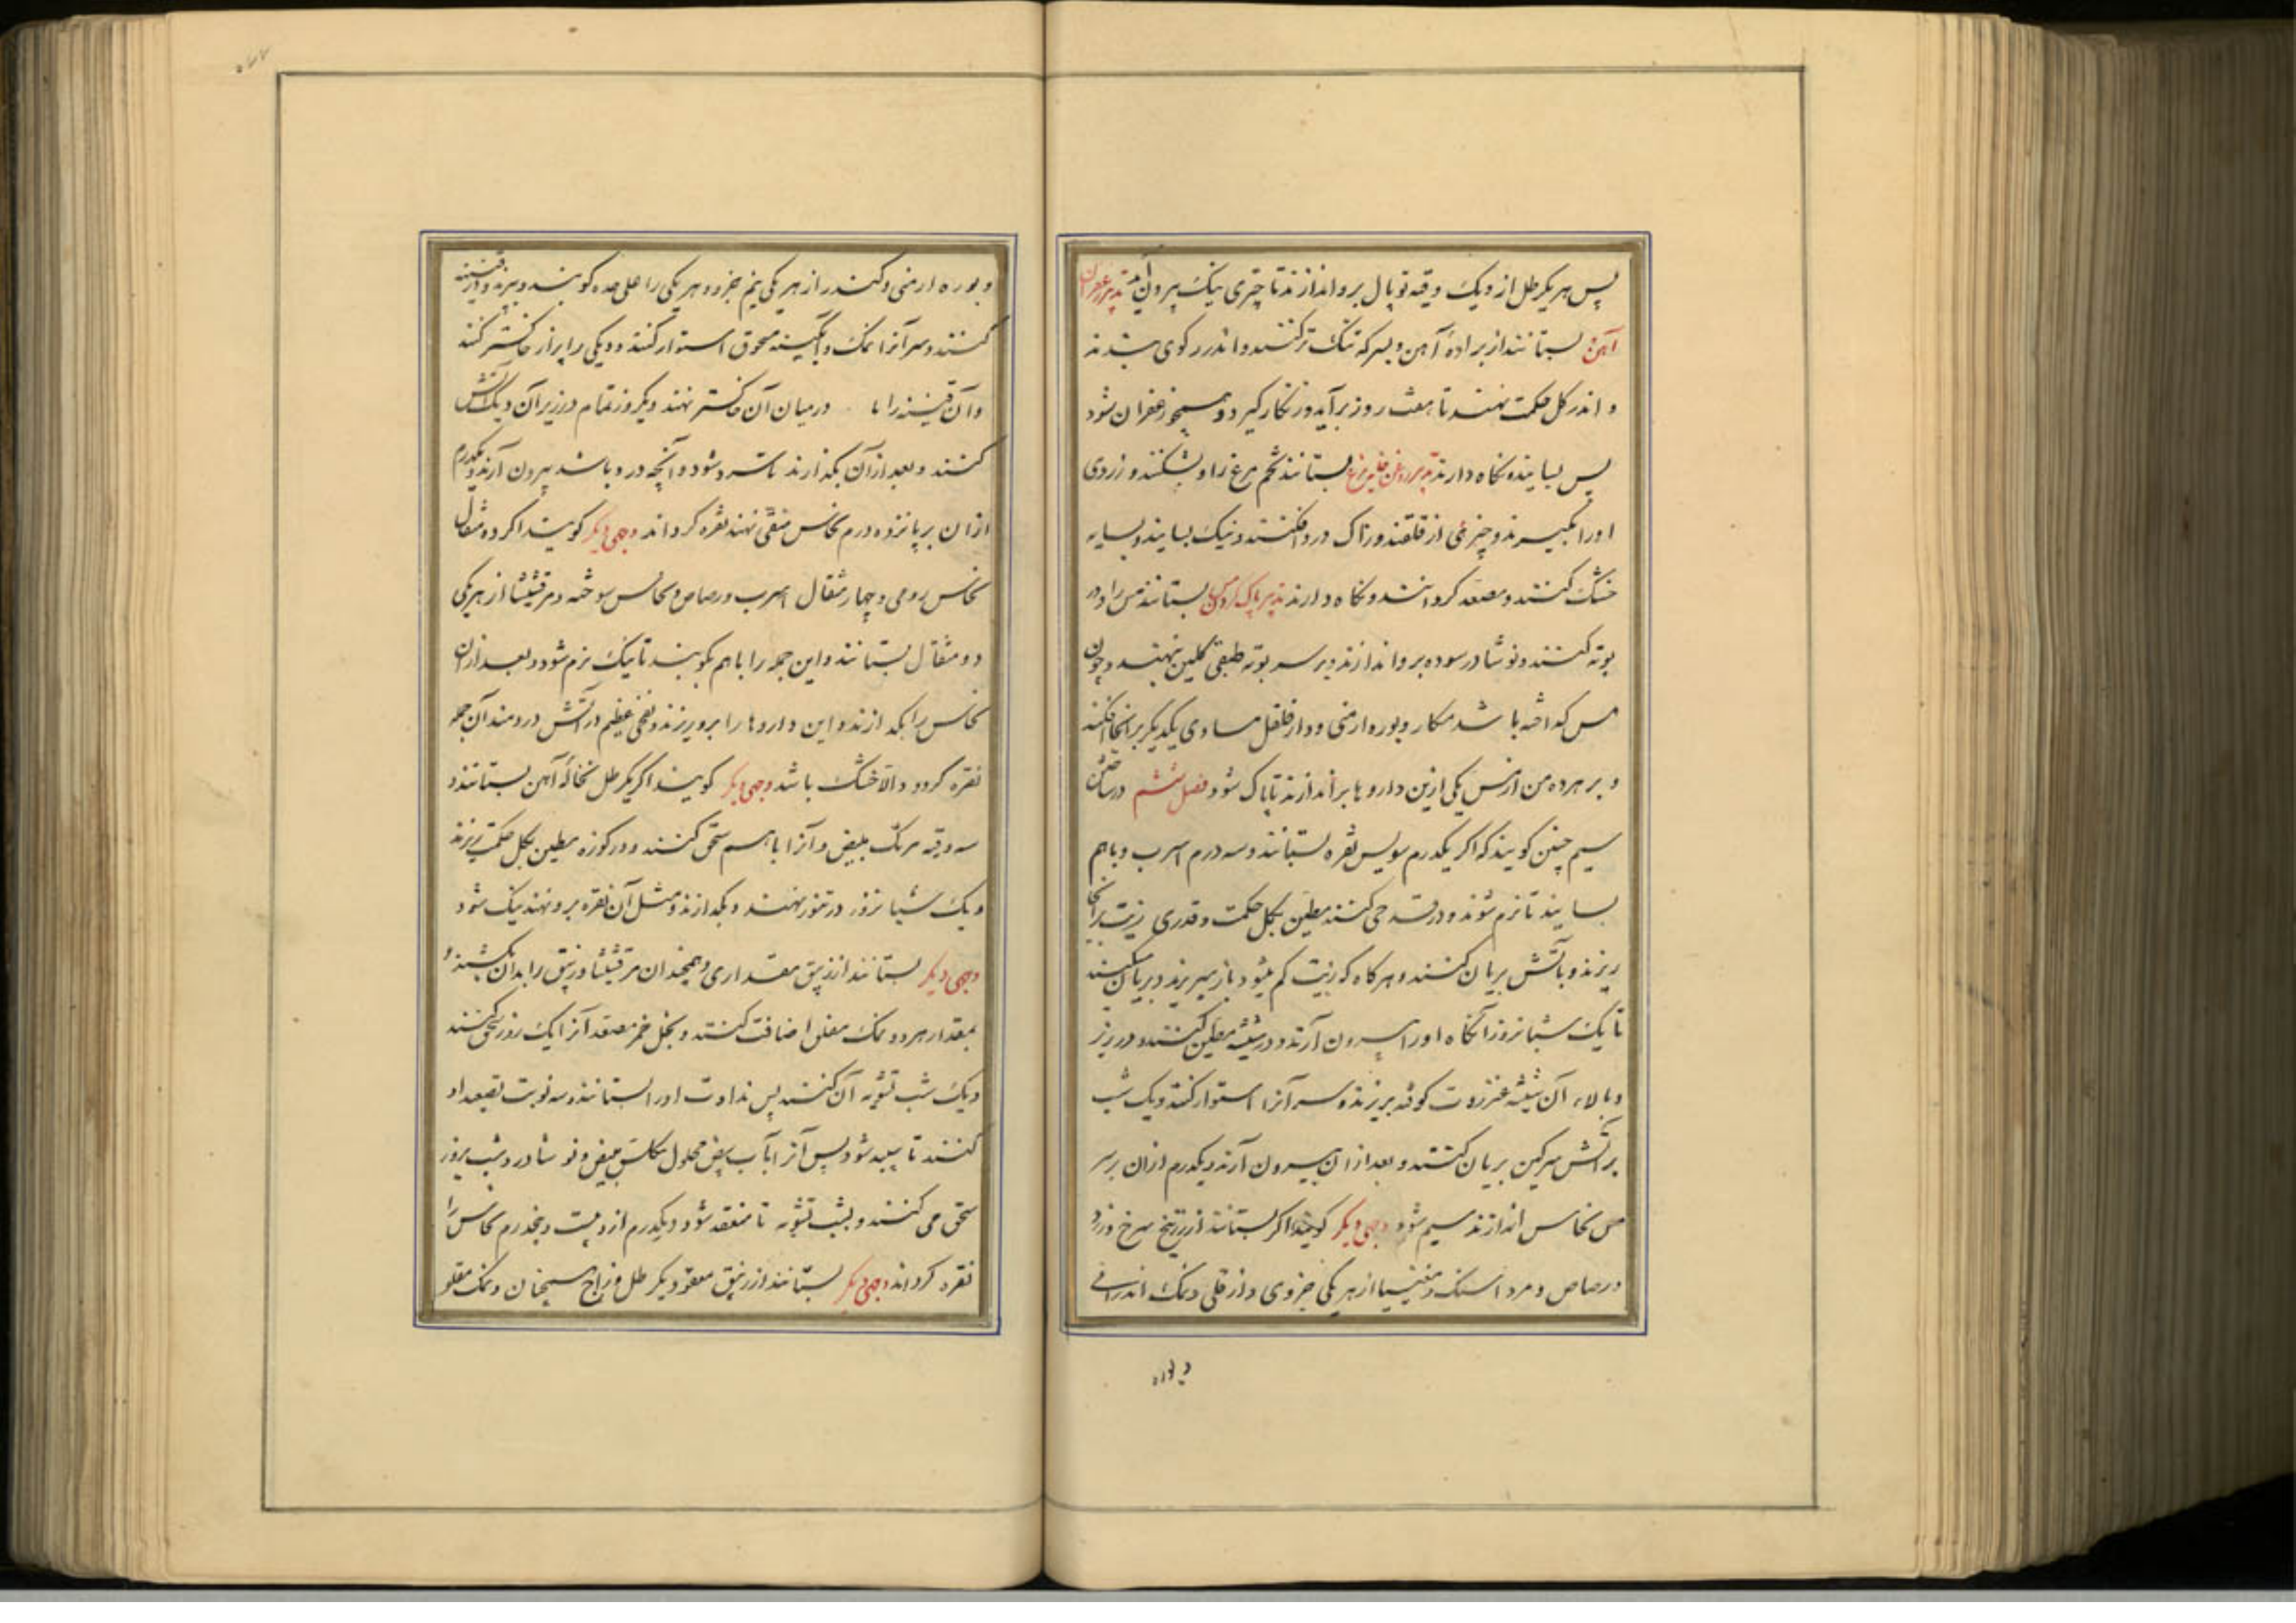 پس هر یکرطل از و یک وقیه توپال برو اندازند تا چتری نیک بیرون آید تدبیر زعفران
آهن بستانند از براده آهن و بسرکه تنک تر کنند و اندر رکوی بندند
و اندر گل حکمت نهند تا هفت روز برآید و زنگار گیرد و همچو زعفران شود
پس بسایند و نگاه دارند تدبیر روغن خایه مرغ بستانند تخم مرغ را و بشکنند و زردی
او را بگیرند و چیزی از قلقند و زاک درو افکنند و نیک بسایند و بسایه
خشک کنند و مصعد گردانند و نگاه دارند تدبیر پاک کردن مس بستانند مس را و در
بوته کنند و نوشادر سوده برو اندازند و بر سر بوته طبقی گلین نهند و چون
مس گداخته باشد تنکار و بوره ارمنی و دارفلفل مساوی یکدیگر بر آنجا افکنند
و بر هر ده من از مس یکی ازین داروها براندازند تا پاک شود فصل ششم در ساختن
سیم چنین گویند که اگر یکدرم سویس نقره بستانند و سه درم اسرب و باهم
بسایند تا نرم شوند و در قدحی کنند مطین بگل حکمت و قدری زیت بر آنجا
ریزند و بآتش بریان کنند و هر گاه که زیت کم میشود باز میریزند و بریان میکنند
تا یک شبانروز آنگاه او را بیرون آرند و در شیشه مطین کنند و در زیر
و بالاء آن شیشه عنزروت کوفته بریزند و سر آنرا استوار کنند و یک شب
بر آتش سرگین بریان کنند و بعد از آن بیرون آرند و یکدرم از آن بر سر
من نحاس اندازند سیم شود وجهی دیگر گویند اگر بستانند از زرنیخ سرخ و زرد
و رصاص و مرداسنک و مغنیسا از هر یکی جزوی و از قلی و نمک اندرانی
و بوره
و بوره ارمنی و کندر از هر یکی نیم جزو و هر یکی را علی حده کوبند و بپزند و در قنینه
کنند و سر آنرا بنمک و آبگینه مسحوق استوار کنند و دیکی را پر از خاکستر کنند
و آن قنینه را تا در میان آن خاکستر نهند و یکروز تمام در زیر آن دیک آتش
کنند و بعد از آن بگذارند تا سرد شود و آنچه درو باشد بیرون آرند و یکدرم
از آن بر پانزده درم نحاس منقی نهند نقره گرداند وجهی دیگر گویند اگر ده مثقال
نحاس رومی و چهار مثقال اسرب و رصاص و نحاس سوخته و مرقشیثا از هر یکی
دو مثقال بستانند و این جمله را باهم بکوبند تا نیک نرم شود و بعد از آن
نحاس را بگدازند و این داروها را برو ریزند و نفخی عظیم در آتش در دمند آن جمله
نقره گردد و الا خشک باشد وجهی دیگر گویند اگر یکرطل نخاله آهن بستانند و
سه وقیه مرتک مبیض و آنرا باهم سحق کنند و در کوزه مطین بگل حکمت ریزند
و یک شبانروز در تنور نهند و بگدازند و مثل آن نقره برو نهند نیک شود
وجهی دیگر بستانند از زیبق مقداری و همچندان مرقشیثا و زیبق را بدان بکشند و
بمقدار هر دو نمک مقلو اضافت کنند و بخل خمر مصعد آنرا یک روز سحق کنند
و یک شب تشویه آن کنند پس نداوت او را بستانند و سه نوبت تصعید او
کنند تا بسته شود پس آنرا بآب بیض محلول بکلس بیض و نوشادر دو شب بروز
سحق می کنند و بشب تشویه تا منعقد شود و یکدرم ازو بیست و پنجدرم نحاس را
نقره گرداند وجهی دیگر بستانند از زیبق معقود یکرطل و زاج سیحان و نمک مقلو